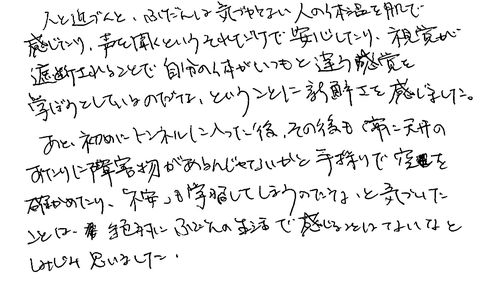 人と近づくと、ふだんは気づかない人の体温を肌で
感じたり、声を聞くというそれだけで安心したり、視覚が
遮断されることで自分の体がいつもと違う感覚を
学ぼうとしているのだな、ということに新鮮さを感じました。
あと、初めにトンネルに入った後、その後も「常に天井の
あたりに障害物があるんじゃないかと手探りで空を
確かめたり、「不安」も学習してしまうのだな、と気づいた
ことは、絶対にふだんの生活で感じることはないなと
しみじみ思いました。